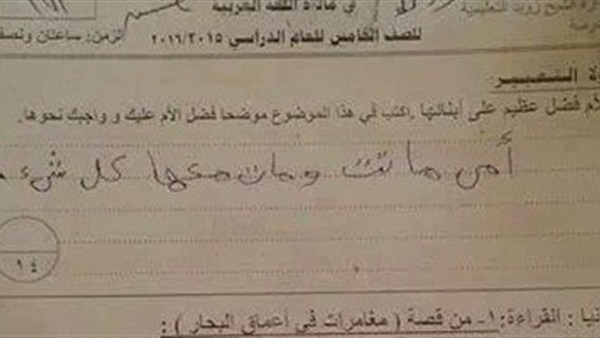 في مادة اللغة العربية
للصف الخامس للعام الدراسي ٢٠١٦/٢٠١٥
الزمن: ساعتان ونصف
ة التعبير
لأم فضل عظيم على أبنائها. اكتب في هذا الموضوع موضحا فضل الأم عليك و واجبك نحوها.
أمي ماتت ومات معها كل شيء
١٤
نيا : القراءة: ١- من قصة ( مغامرات في أعماق البحار ) :